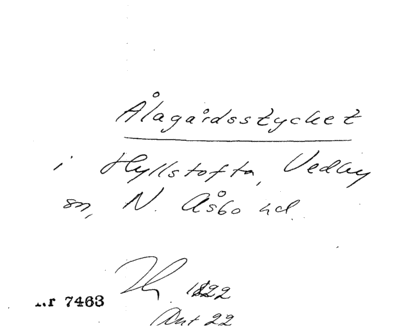 Ålagårdsstycket
i Hyllstofta, Vedby
sn, N. Åsbo hd.
1822
Nr 7463
Ant 22